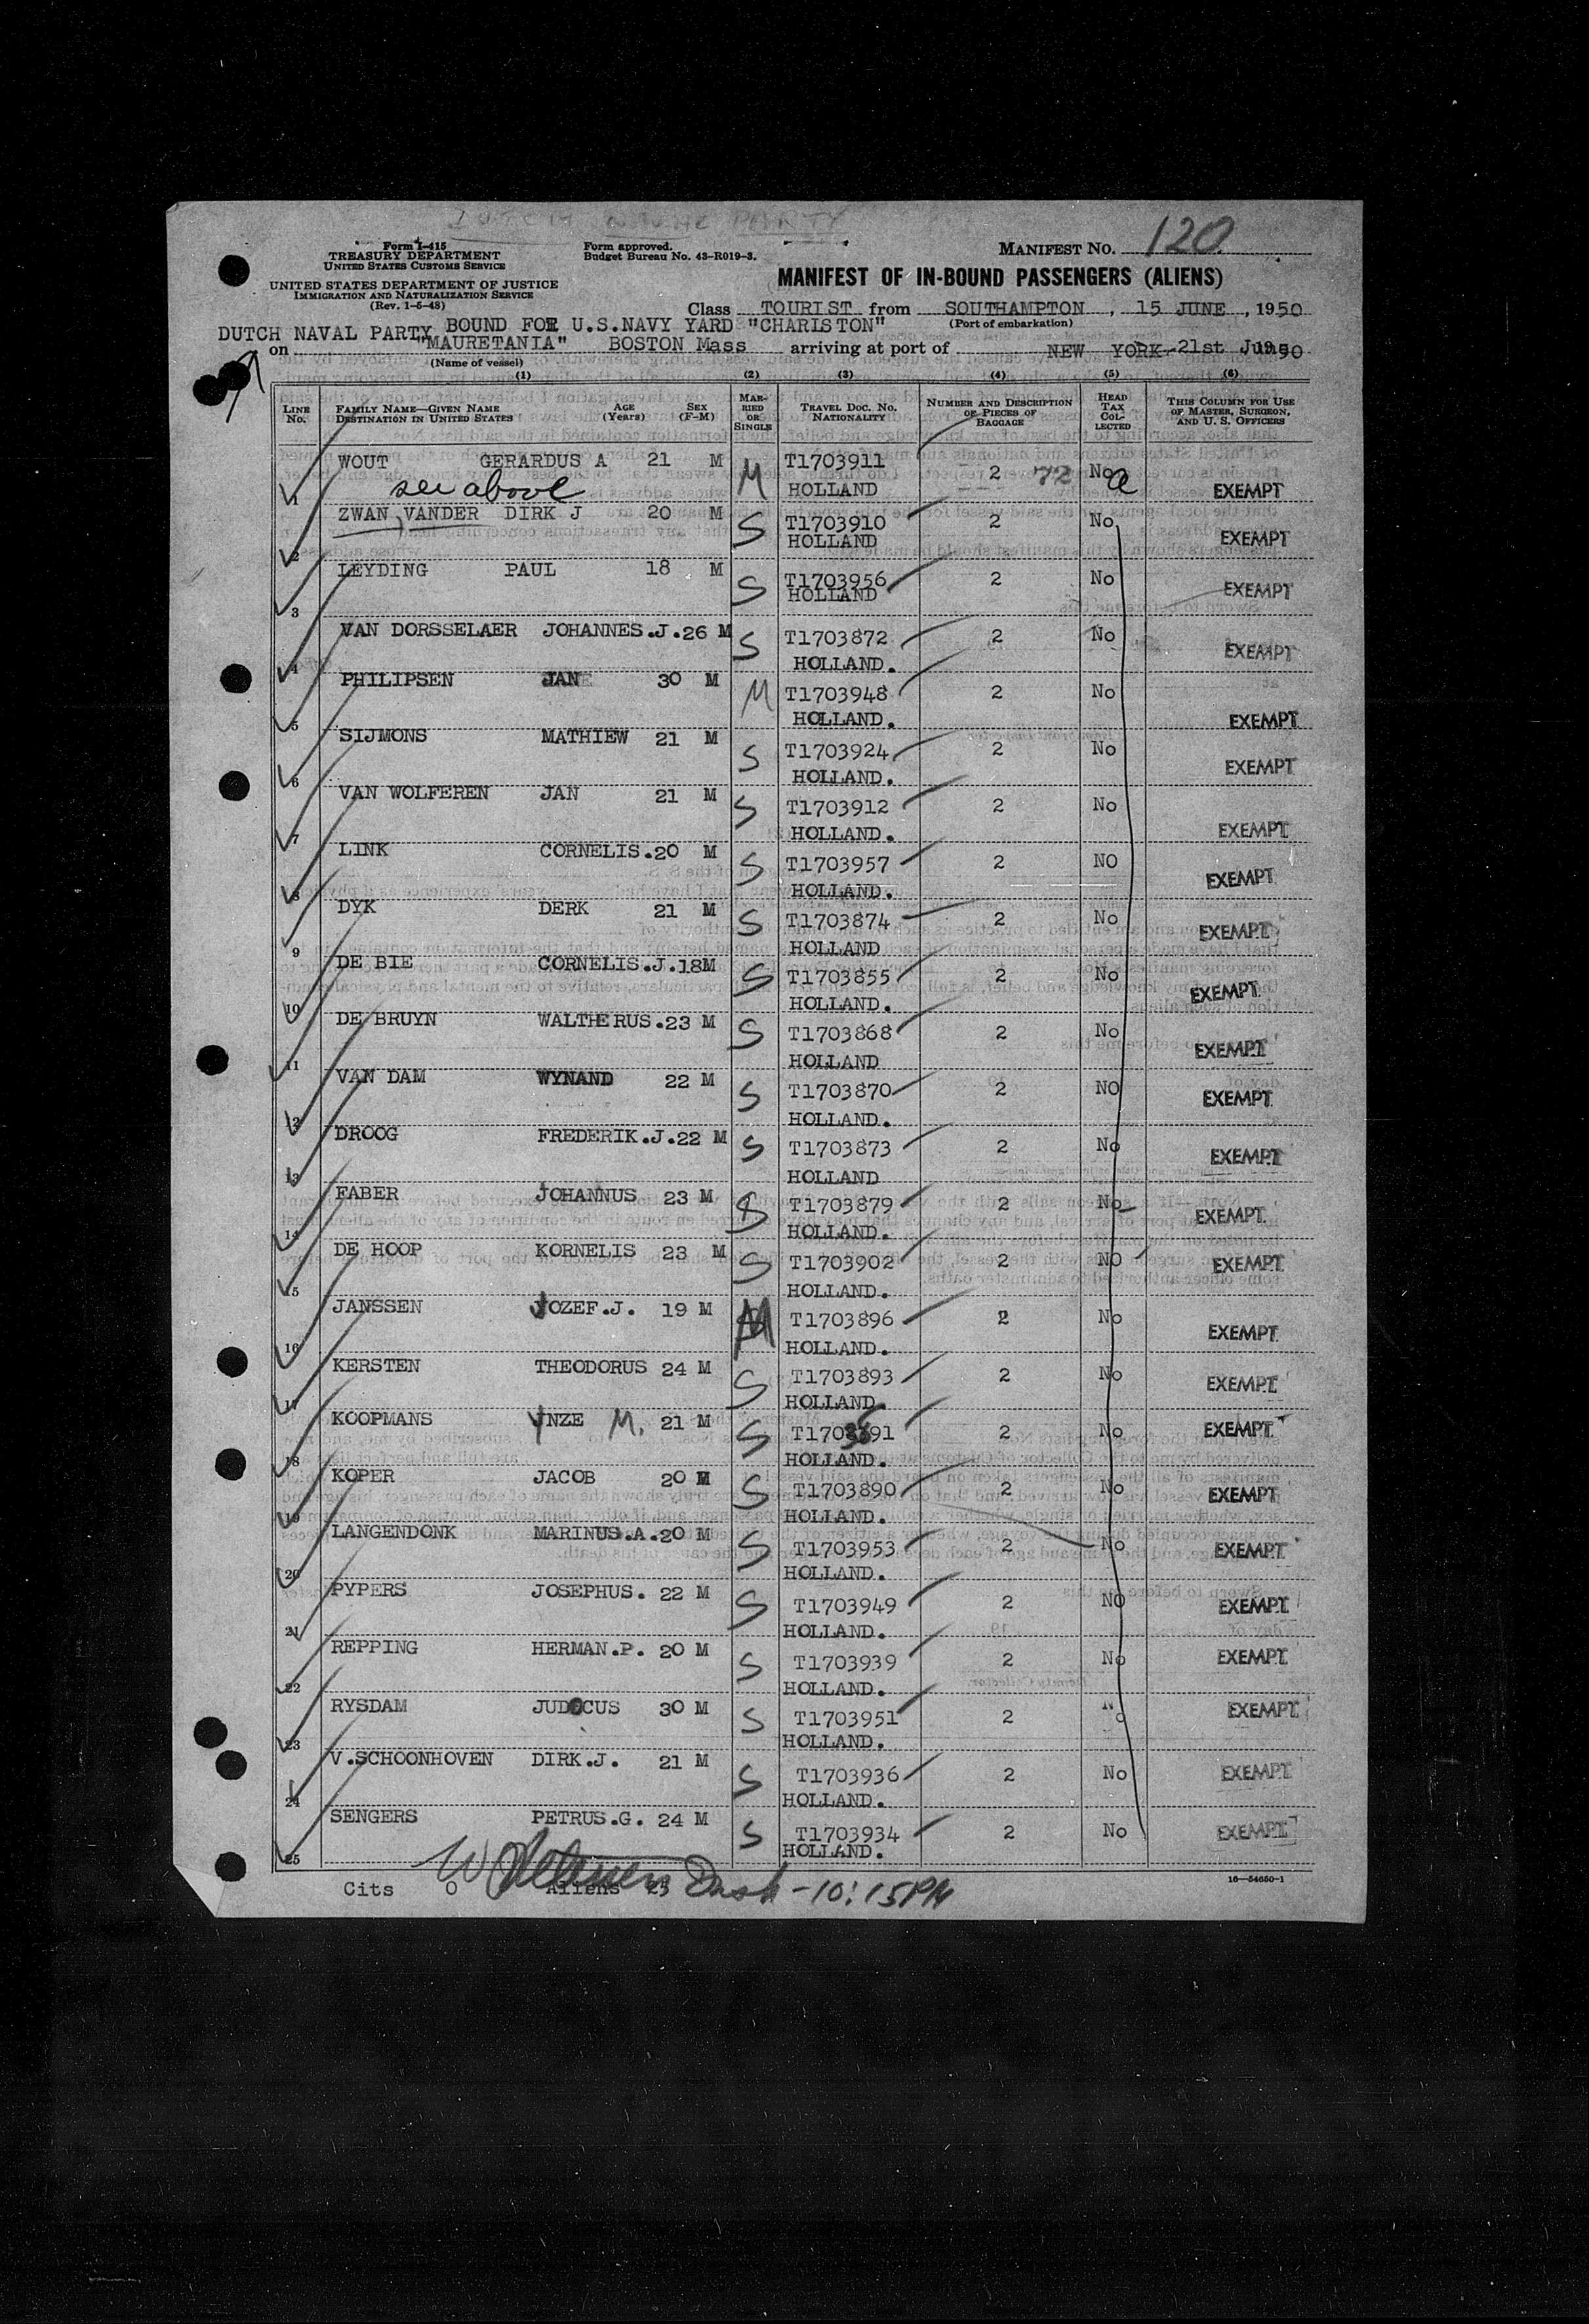 DUTCH NAVAL PARTY
Form I-415
TREASURY DEPARTMENT
UNITED STATES CUSTOMS SERVICE
Form approved.
Budget Bureau No. 43-R019-3.
MANIFEST NO. 120
UNITED STATES DEPARTMENT OF JUSTICE
IMMIGRATION AND NATURALIZATION SERVICE
(Rev. 1-5-48)
MANIFEST OF IN-BOUND PASSENGERS (ALIENS)
Class TOURIST from SOUTHAMPTON, 15 JUNE, 1950
(Port of embarkation)
DUTCH NAVAL PARTY BOUND FOR U.S.NAVY YARD "CHARISTON"
on "MAURETANIA" BOSTON Mass arriving at port of NEW YORK 21st June 1950
(Name of vessel)
(1) (2) (3) (4) (5) (6)
LINE NO. FAMILY NAME—GIVEN NAME DESTINATION IN UNITED STATES AGE (Years) SEX (F-M) MARRIED OR SINGLE TRAVEL DOC. NO. NATIONALITY NUMBER AND DESCRIPTION OF PIECES OF BAGGAGE HEAD TAX COLLECTED THIS COLUMN FOR USE OF MASTER, SURGEON, AND U. S. OFFICERS
1 WOUT GERARDUS A 21 M M T1703911 2 72 No
see above HOLLAND EXEMPT
2 ZWAN, VANDER DIRK J 20 M S T1703910 2 No
HOLLAND EXEMPT
3 LEYDING PAUL 18 M S T1703956 2 No
HOLLAND EXEMPT
4 VAN DORSSELAER JOHANNES.J.26 M S T1703872 2 No
HOLLAND. EXEMPT
5 PHILIPSEN JAN 30 M M T1703948 2 No
HOLLAND. EXEMPT
6 SIJMONS MATHIEW 21 M S T1703924 2 No
HOLLAND. EXEMPT
7 VAN WOLFEREN JAN 21 M S T1703912 2 No
HOLLAND. EXEMPT
8 LINK CORNELIS.20 M S T1703957 2 NO
HOLLAND. EXEMPT
9 DYK DERK 21 M S T1703874 2 No
HOLLAND EXEMPT
10 DE BIE CORNELIS.J.18M S T1703855 2 No
HOLLAND. EXEMPT
11 DE BRUYN WALTHERUS.23 M S T1703868 2 No
HOLLAND EXEMPT
12 VAN DAM WYNAND 22 M S T1703870 2 NO
HOLLAND. EXEMPT
13 DROOG FREDERIK.J.22 M S T1703873 2 No
HOLLAND EXEMPT
14 FABER JOHANNUS 23 M S T1703879 2 No
HOLLAND. EXEMPT
15 DE HOOP KORNELIS 23 M S T1703902 2 NO
HOLLAND. EXEMPT
16 JANSSEN JOZEF.J. 19 M M T1703896 2 No
HOLLAND. EXEMPT
17 KERSTEN THEODORUS 24 M S T1703893 2 No
HOLLAND. EXEMPT
18 KOOPMANS YNZE M. 21 M S 2 No
HOLLAND. EXEMPT
19 KOPER JACOB 20 M S T1703890 2 No
HOLLAND. EXEMPT
20 LANGENDONK MARINUS.A.20 M S T1703953 2 No
HOLLAND. EXEMPT
21 PYPERS JOSEPHUS. 22 M S T1703949 2 NO
HOLLAND. EXEMPT
22 REPPING HERMAN.P. 20 M S T1703939 2 No
HOLLAND. EXEMPT
23 RYSDAM JUDOCUS 30 M S T1703951 2 No
HOLLAND. EXEMPT
24 V.SCHOONHOVEN DIRK.J. 21 M S T1703936 2 No
HOLLAND. EXEMPT
25 SENGERS PETRUS.G. 24 M S T1703934 2 No
HOLLAND. EXEMPT
Cits 0 Aliens 25 10:15PM
16—54650-1